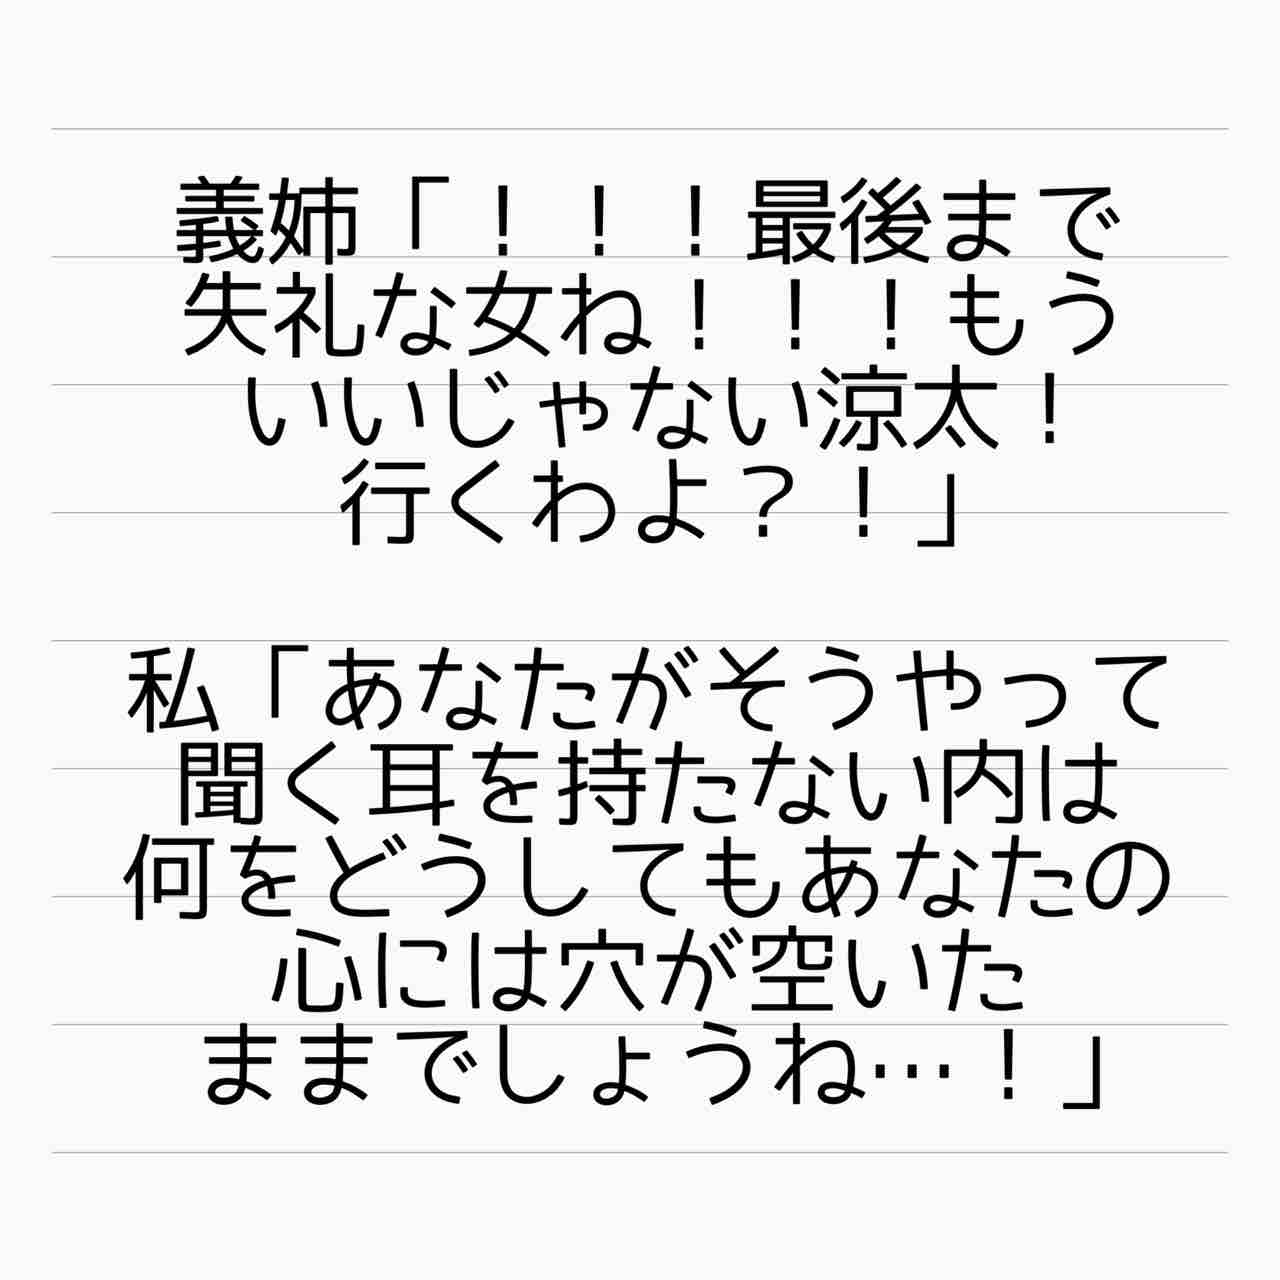 義姉「！！！最後まで
失礼な女ね！！！もう
いいじゃない涼太！
行くわよ？！」
私「あなたがそうやって
聞く耳を持たない内は
何をどうしてもあなたの
心には穴が空いた
ままでしょうね…！」